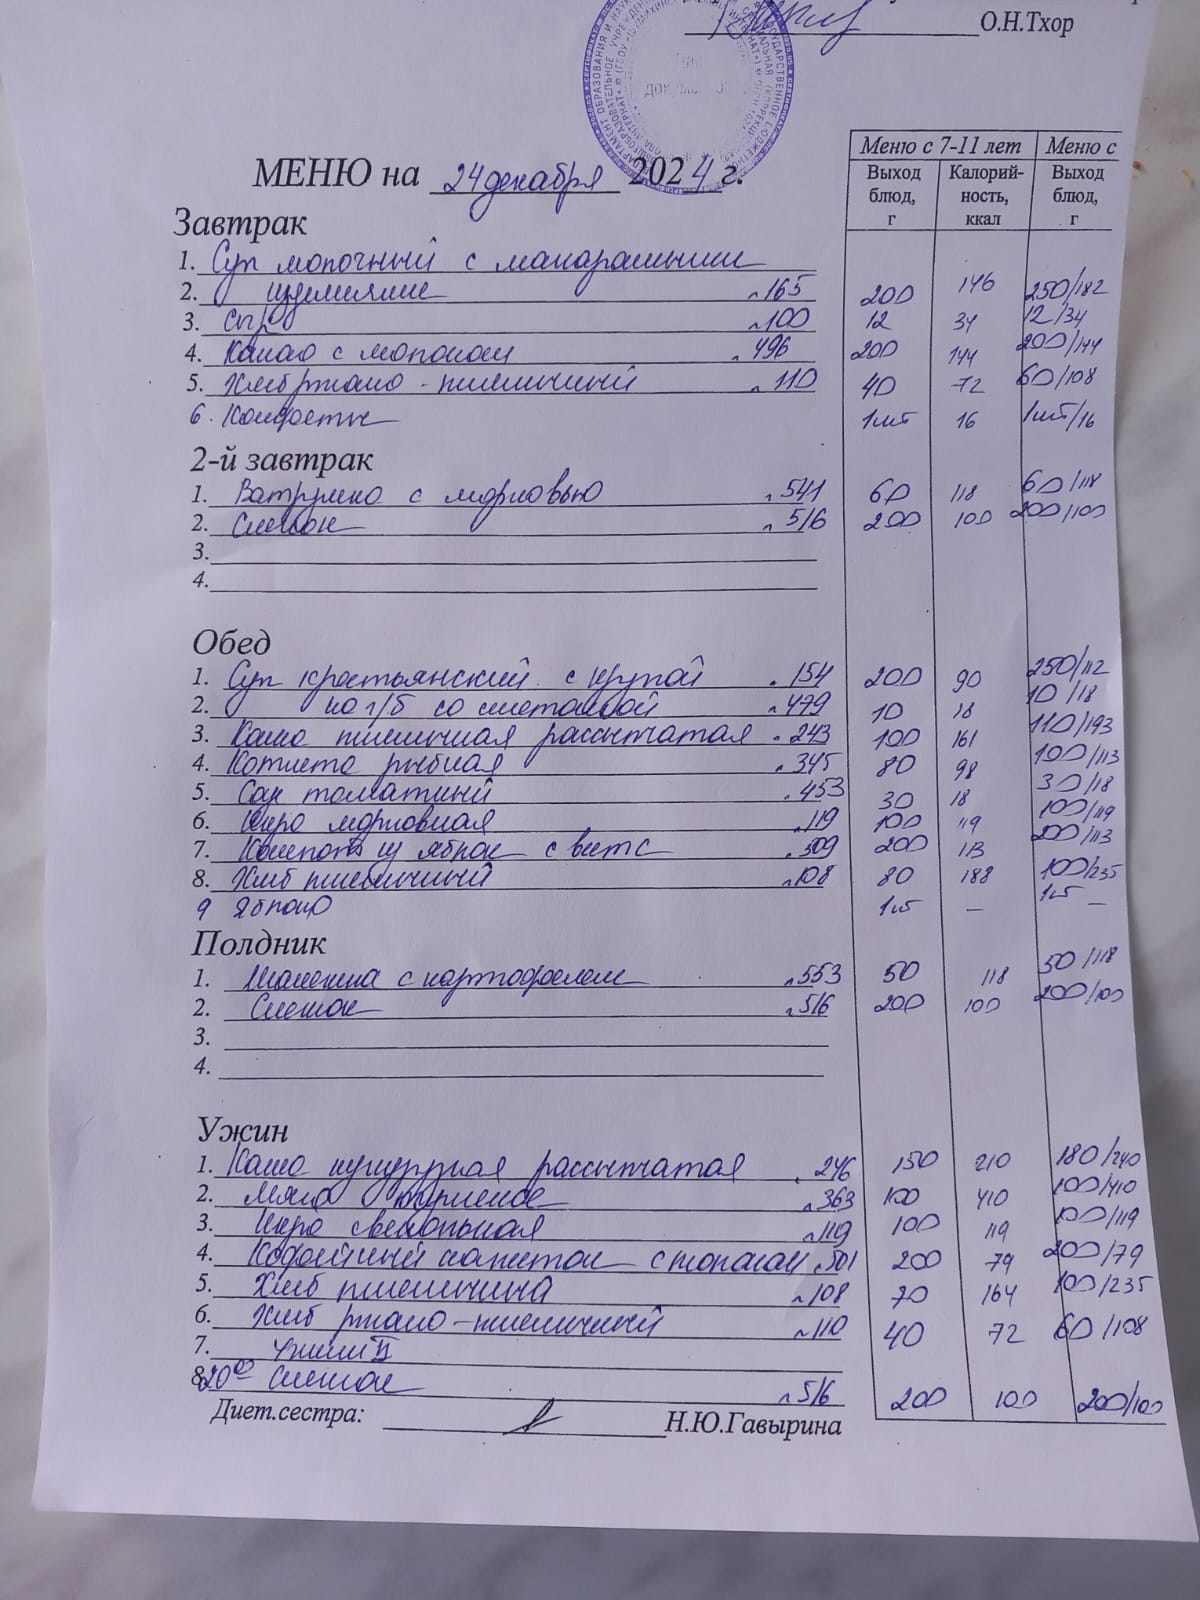 О.Н.Тхор
Меню с 7-11 лет Меню с
Выход блюд, г Калорий-ность, ккал Выход блюд, г
МЕНЮ на 24 декабря 2024 г.
Завтрак
1. Суп молочный с макаронными
2. изделиями л165 200 146 250/182
3. Сыр л100 12 34 12/34
4. Какао с молоком л496 200 144 200/144
5. Хлеб ржано-пшеничный л110 40 72 60/108
6. Конфеты 1шт 16 1шт/16
2-й завтрак
1. Ватрушка с морковью л541 60 118 60/118
2. Снежок л516 200 100 200/100
3.
4.
Обед
1. Суп крестьянский с крупой л154 200 90 250/112
2. на г/б со сметаной л479 10 18 10/18
3. Каша пшеничная рассыпчатая л243 100 161 110/193
4. Котлета рыбная л345 80 98 100/113
5. Соус томатный л453 30 18 30/18
6. Икра морковная л119 100 119 100/119
7. Компот из яблок с вит С л509 200 113 200/113
8. Хлеб пшеничный л108 80 188 100/235
9 Яблоко 1шт – 1шт –
Полдник
1. Шанежка с картофелем л553 50 118 50/118
2. Снежок л516 200 100 200/100
3.
4.
Ужин
1. Каша кукурузная рассыпчатая л246 150 210 180/240
2. Мясо тушеное л363 100 410 100/410
3. Икра свекольная л119 100 119 100/119
4. Кофейный напиток с молоком л501 200 79 200/79
5. Хлеб пшеничный л108 70 164 100/235
6. Хлеб ржано-пшеничный л110 40 72 60/108
7. Ужин II
8. 20⁰⁰ Снежок л516 200 100 200/100
Диет.сестра: Н.Ю.Гавырина